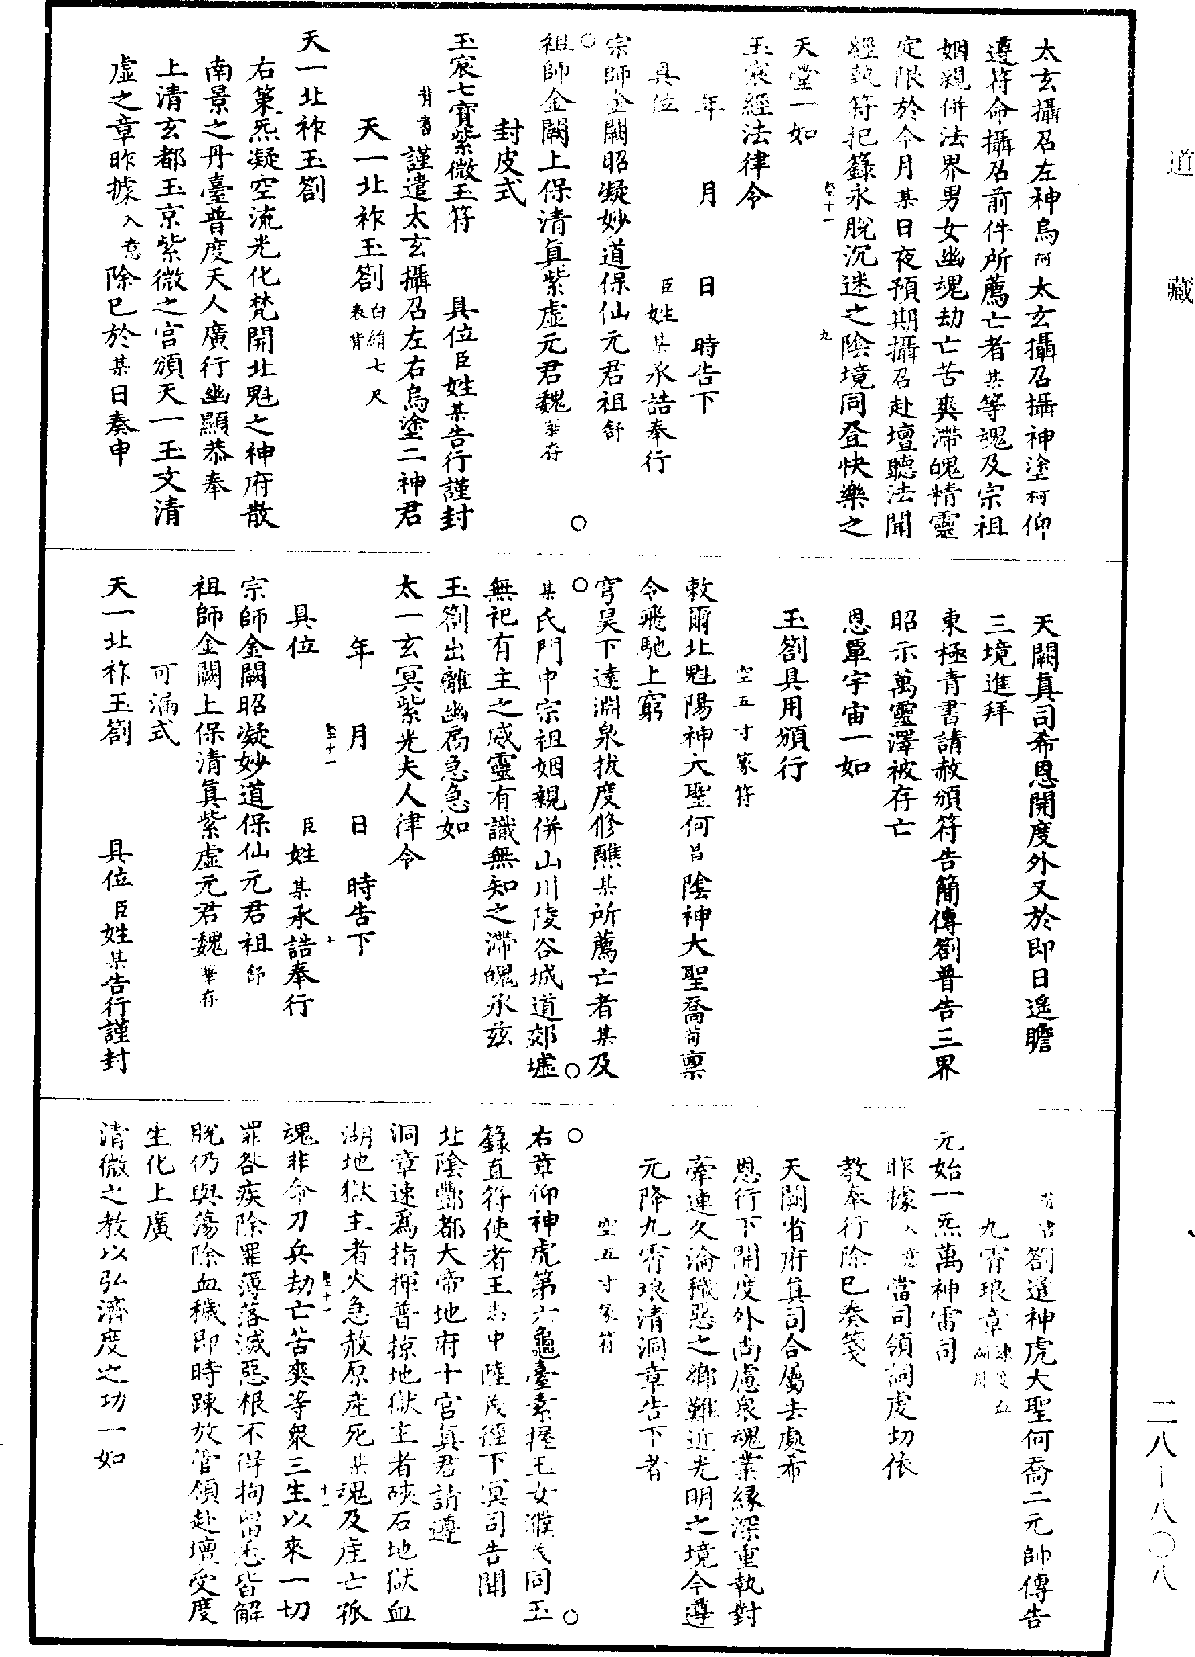 道藏
二八—八〇八
太玄攝召左神烏阿太玄攝召攝神塗柯仰
遵符命攝召前件所薦亡者某等魂及宗祖
姻親併法界男女幽魂劫亡苦爽滯魄精靈
定限於今月某日夜預期攝召赴壇聽法聞
經執符把籙永脫沉迷之陰境同登快樂之
天堂一如
玉宸經法律令
年　月　日　時告下
具位　臣姓某承誥奉行
宗師金闕昭凝妙道保仙元君祖舒
祖師金闕上保清真紫虛元君魏華存
封皮式
玉宸七寶紫微玉符　具位臣姓某告行謹封
背書謹遣太玄攝召左右烏塗二神君
天一北祚玉劄白絹七尺表背
天一北祚玉劄
右築炁凝空流光化梵開北魁之神府散
南景之丹臺普度天人廣行幽顯恭奉
上清玄都玉京紫微之宮頒天一玉文清
虛之章昨據入意除已於某日奏申
天闕真司希恩開度外又於即日遙瞻
三境進拜
東極青書請赦頒符告簡傳劄普告三界
昭示萬靈澤被存亡
恩覃宇宙一如
玉劄具用頒行
空五寸篆符
敕爾北魁陽神大聖何昌陰神大聖喬荀稟
令飛馳上窮
穹昊下達淵泉拔度修醮某所薦亡者某及
某氏門中宗祖姻親併山川陵谷城道郊墟
無祀有主之威靈有識無知之滯魄承玆
玉劄出離幽扃急急如
太一玄冥紫光夫人律令
年　月　日　時告下
具位　臣姓某承誥奉行
宗師金闕昭凝妙道保仙元君祖舒
祖師金闕上保清真紫虛元君魏華存
可漏式
天一北祚玉劄　具位臣姓某告行謹封
背書劄遣神虎大聖何喬二元帥傳告
九霄琅章
元始一炁萬神雷司
昨據入意當司領詞虔切依
教奉行除已奏箋
天闕省府真司合屬去處希
恩行下開度外尚慮衆魂業緣深重執對
牽連久淪穢惡之鄉難近光明之境今遵
元降九霄琅清洞章告下者
空五寸篆符
右章仰神虎第六龜臺素握玉女濮氏同玉
籙直符使者王志中陸茂徑下冥司告聞
北陰酆都大帝地府十宮真君請遵
洞章速為指揮普掠地獄主者硤石地獄血
湖地獄主者火急赦原產死某魂及產亡孤
魂非命刀兵劫亡苦爽等衆三生以來一切
罪咎疾除罪簿落滅惡根不得拘留悉皆解
脫仍與蕩除血穢即時疎放管領赴壇受度
生化上廣
清微之教以弘濟度之功一如